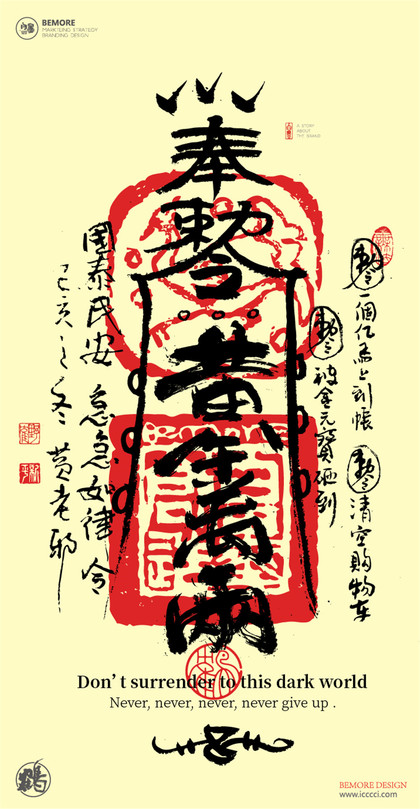 BEMORE
MARKETING STRATEGY
BRANDING DESIGN
A STORY
ABOUT
THE BRAND
奉敕令黄金萬兩
敕令一個亿馬上到帳
敕令被金元寶砸到
敕令清空购物车
國泰民安 急急如律令
己亥之冬 黄老邪
Don't surrender to this dark world
Never, never, never, never give up .
鶴
BEMORE DESIGN
www.icccci.com